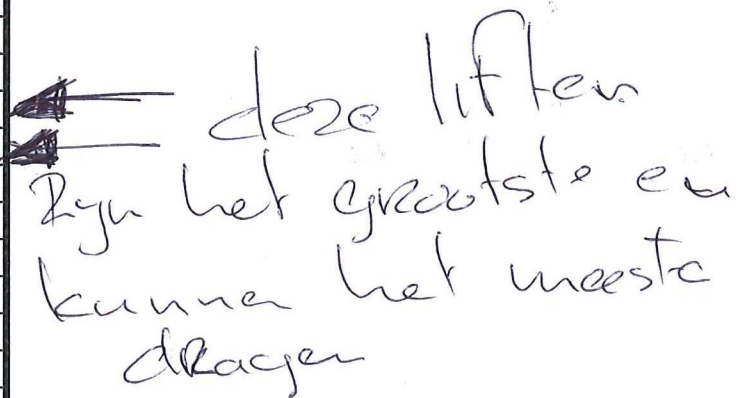 deze liften
Zijn het grootste en
kunnen het meeste
dragen